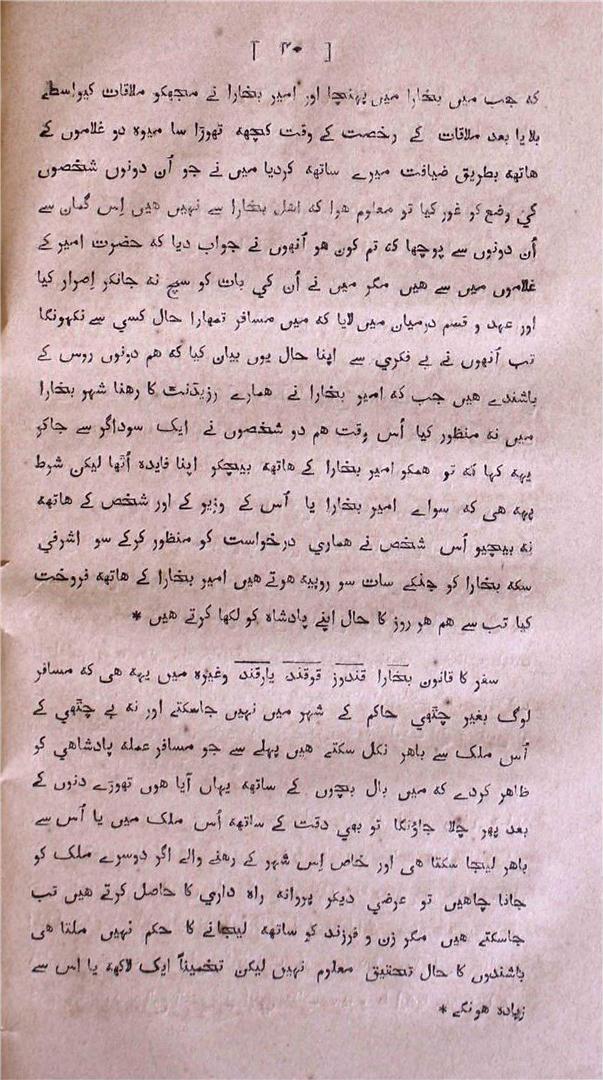 [ ۳۰ ]
که جب میں بخارا میں پہنچا اور امیر بخارا نے مجھکو ملاقات کیواسطے
بلایا بعد ملاقات کے رخصت کے وقت کچھہ تھوڑا سا میوہ دو غلاموں کے
ھاتھہ بطریق ضیافت میرے ساتھہ کردیا میں نے جو اُن دونوں شخصوں
کي وضع کو غور کیا تو معلوم ھوا کہ اھل بخارا سے نہیں ھیں اِس گمان سے
اُن دونوں سے پوچھا که تم کون ھو اُنھوں نے جواب دیا که حضرت امیر کے
غلاموں میں سے ھیں مگر میں نے اُن کي بات کو سچ نه جانکر اِصرار کیا
اور عہد و قسم درمیان میں لایا که میں مسافر تمھارا حال کسی سے نکہونگا
تب اُنھوں نے بے فکري سے اپنا حال یوں بیان کیا که ھم دونوں روس کے
باشندے ھیں جب که امیر بخارا نے ھمارے رزیڈنت کا رھنا شہر بخارا
میں نه منظور کیا اُس وقت ھم دو شخصوں نے ایک سوداگر سے جاکر
یہه کہا که تو ھمکو امیر بخارا کے ھاتھه بیچکر اپنا فایدہ اُٹھا لیکن شرط
یہه ھی که سواے امیر بخارا یا اُس کے وزیر کے اور شخص کے ھاتھه
نه بیچیو اُس شخص نے ھماري درخواست کو منظور کرکے سو اشرفي
سکه بخارا کو جنکے سات سو روپیه ھوتے ھیں امیر بخارا کے ھاتھه فروخت
کیا تب سے ھم ھر روز کا حال اپنے پادشاہ کو لکھا کرتے ھیں *
سفر کا قانون بخارا قندوز قوقند یارقند وغیرہ میں یہه ھی که مسافر
لوگ بغیر چٹھي حاکم کے شہر میں نہیں جاسکتے اور نه بے چٹھي کے
اُس ملک سے باھر نکل سکتے ھیں پہلے سے جو مسافر عمله پادشاھي کو
ظاھر کردے که میں بال بچوں کے ساتھه یہاں آیا ھوں تھوڑے دنوں کے
بعد پھر چلا جاؤنگا تو بھي دقت کے ساتھه اُس ملک میں یا اُس سے
باھر لیجا سکتا ھی اور خاص اِس شہر کے رھنے والے اگر دوسرے ملک کو
جانا چاھیں تو عرضي دیکر پروانه راہ داري کا حاصل کرتے ھیں تب
جاسکتے ھیں مگر زن و فرزند کو ساتھه لیجانے کا حکم نہیں ملتا ھی
باشندوں کا حال تحقیق معلوم نہیں لیکن تخمیناً ایک لاکھه یا اس سے
زیادہ ھونگے *